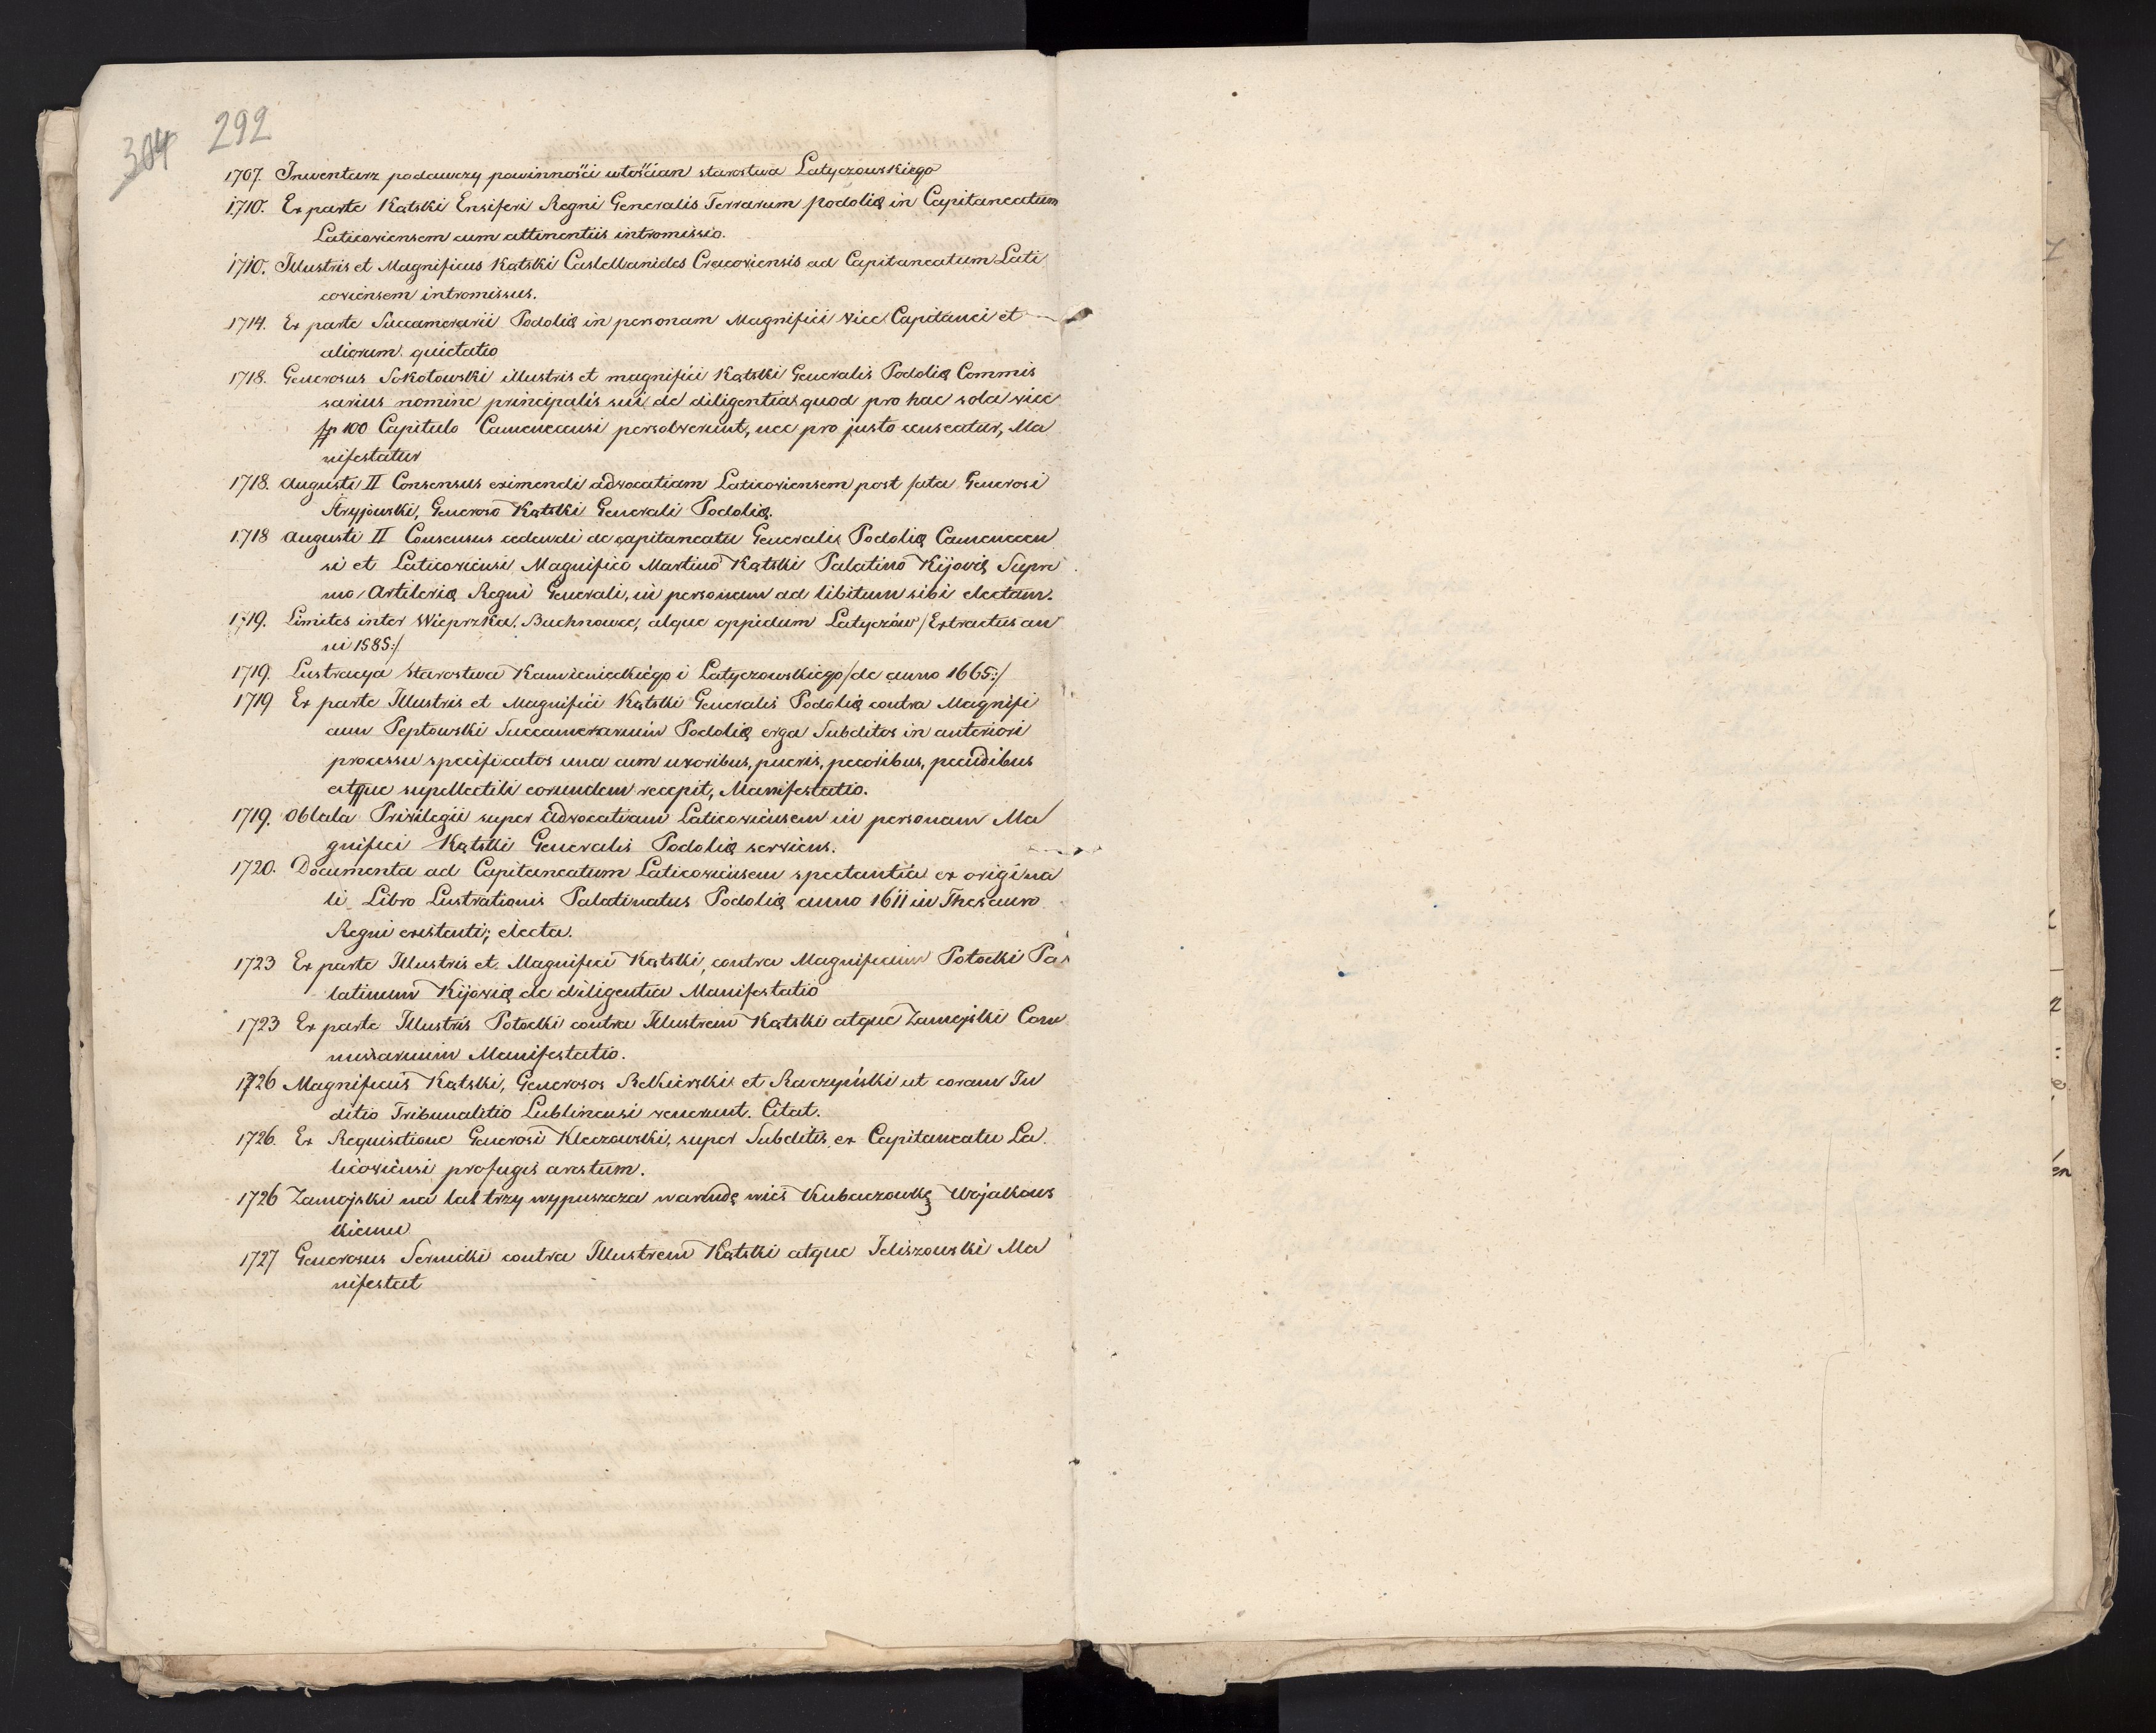 304 292
1707. Inwentarz podawczy powinności włościan starostwa Latyczowskiego
1710. Ex parte Kątski Ensiferi Regni Generalis Terrarum podolię in Capitaneatum
Laticoviensem cum attinentiis intromissio.
1710. Illustris et Magnificus Kątski Castellanides Cracoviensis ad Capitaneatum Lati
coviensem intromissus.
1714. Ex parte Succamerarii Podolię in personam Magnifici Vice Capitanei et
aliorum quietatio
1718. Generosus Sokołowski illustris et magnifici Kątski Generalis Podolię Commis
sarius nomine principalis sui de diligentia quod pro hac sola vice
100 Capitulo Camenecensi persolverunt, nec pro justo censeatur, Ma
nifestatur
1718. Augusti II Consensus eximendi advocatiam Laticoviensem post fata Generosi
Stryjowski, Generoso Kątski Generali Podolię.
1718 Augusti II Consensus cedendi de capitaneatu Generalis Podolię Camenecen
si et Laticoviensi Magnifico Martino Kątski Palatino Kijovię Supre
mo Artilerię Regni Generali, in personam ad libitum sibi electam.
1719. Limites inter Wieprzka, Buchnowce, atque oppidum Latyczów /Extractus an
ni 1585:/
1719. Lustracya starostwa Kamienieckiego i Latyczowskiego /de anno 1665:/
1719 Ex parte Illustris et Magnifici Kątski Generalis Podolię contra Magnifi
cum Peptowski Succamerarium Podolię erga Subditos in anteriori
processu specificatos una cum uxoribus, pueris, pecoribus, pecudibus
atque supellectili eorundem recepit, Manifestatio.
1719. Oblata Privilegii super advocatiam Laticoviensem in personam Ma
gnifici Kątski Generalis Podolię serviens.
1720. Documenta ad Capitaneatum Laticoviensem spectantia ex origina
li Libro Lustrationis Palatinatus Podolię anno 1611 in Thesauro
Regni existenti; electa.
1723 Ex parte Illustris et Magnifici Kątski, contra Magnificum Potocki Pa
latinum Kijovię de diligentia Manifestatio
1723 Ex parte Illustris Potocki contra Illustrem Kątski atque Zamojski Com
missarium Manifestatio.
1726 Magnificus Kątski, Generosos Rekierski et Raczyński ut coram Iu
ditio Tribunalitio Lublinensi venerunt. Citat.
1726. Ex Requisitione Generosi Kleczowski, super Subditis ex Capitaneatu La
ticoviensi profugis arestum.
1726 Zamojski na lat trzy wypuszcza w arendę wieś Kubaczowkę Wojakows
kiemu
1727 Generosus Sernicki contra Illustrem Kątski atque Jeliszowski Ma
nifestat